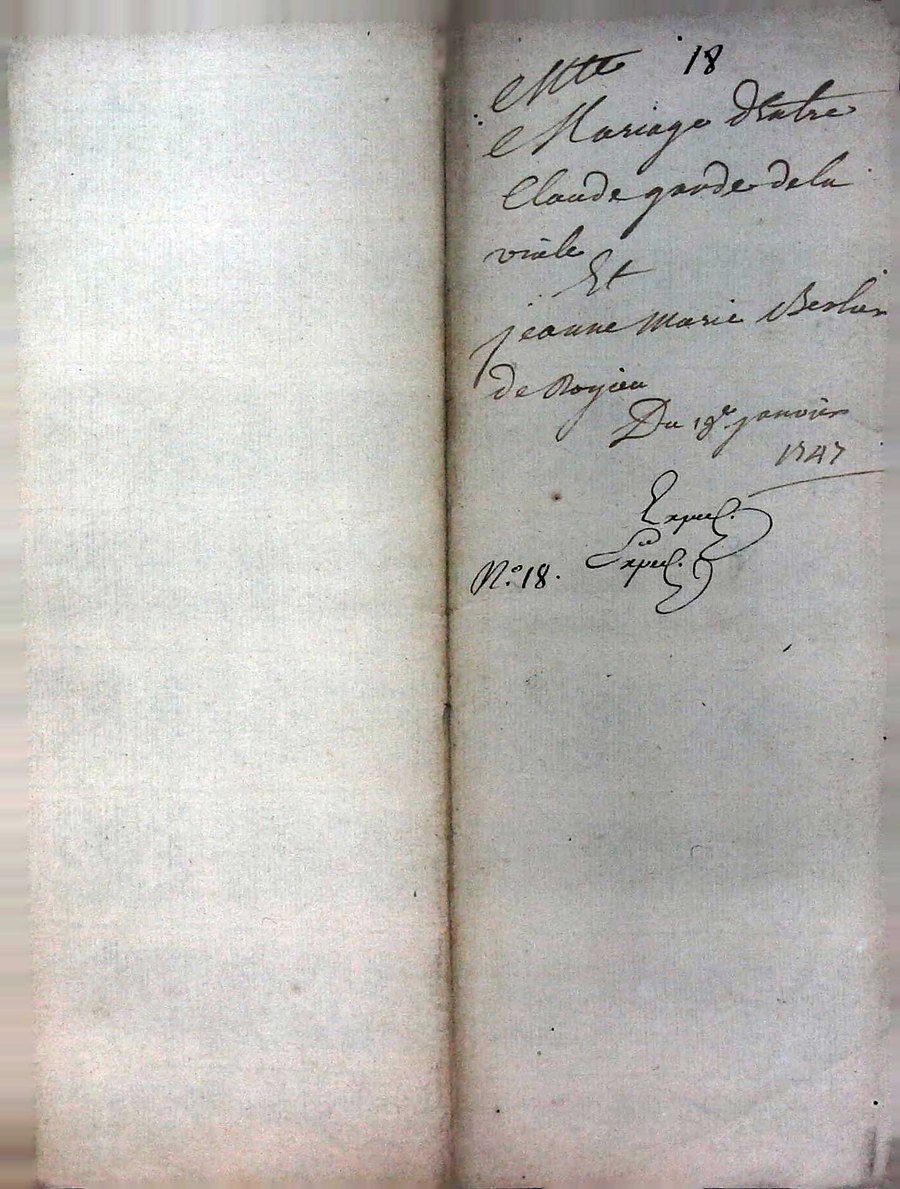 18
Mariage D'Entre
Claude garde dela
vielle
Et
jeanne Marie Berlier
de Royieu
Du 19e janvier
1747
Expéd.
Expéd.
N.o 18.